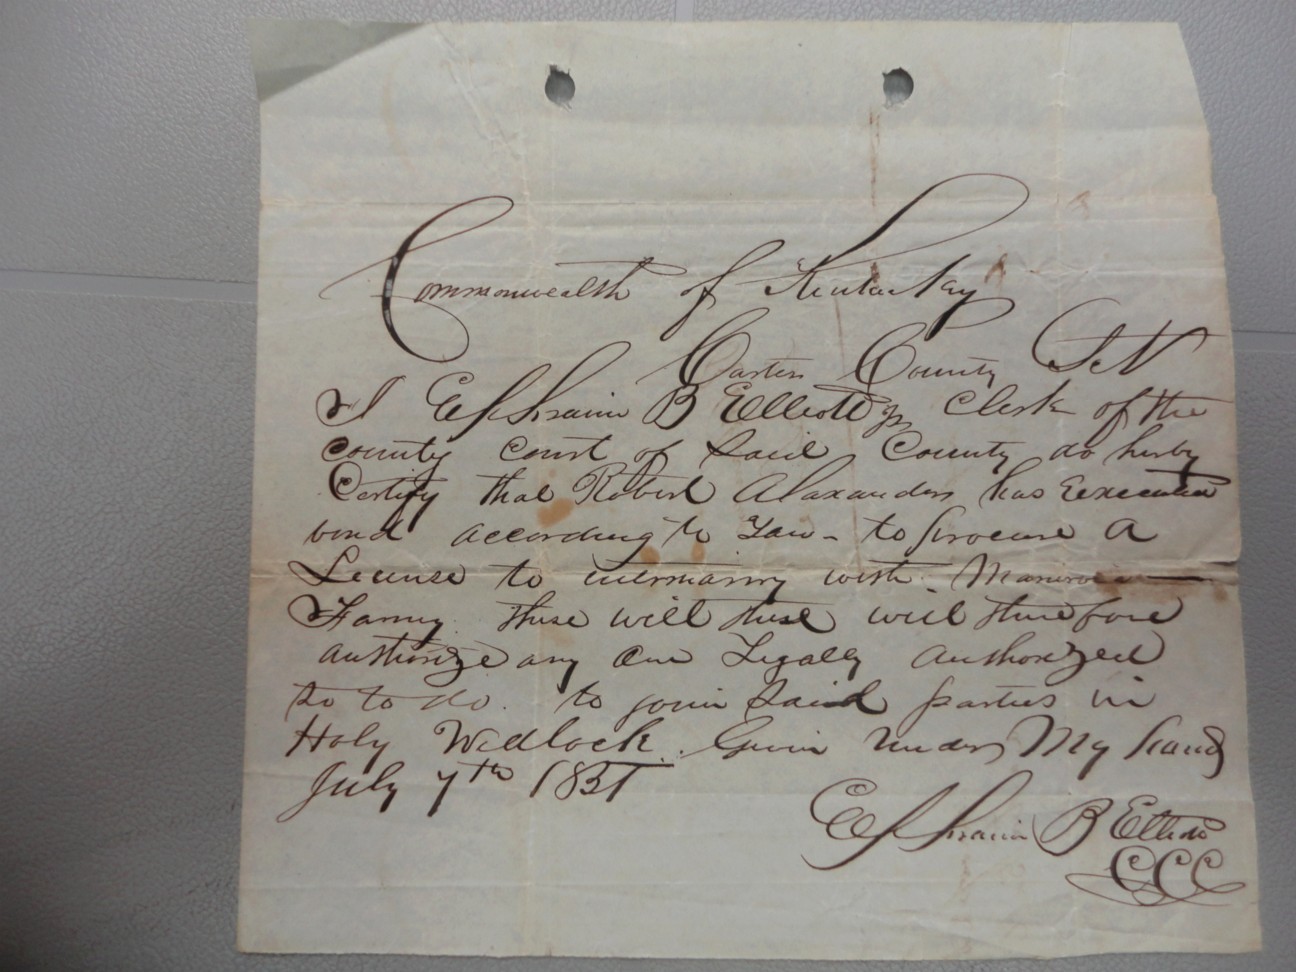 Commonwealth of Kentuckay
Carter County Sct
I Ephraim B Elliott Jr Clerk of the
county court of said County do herby
Certify that Robert Alaxander has Eexecuted
bond according to Law - to procure A
License to intermarry with
Fanny these will these will therefore
authorize any one Legally authorized
so to do. to join said parties in
Holy Wedlock. Given under My hand
July 7th 1851
Ephraim B Elliott
CCC